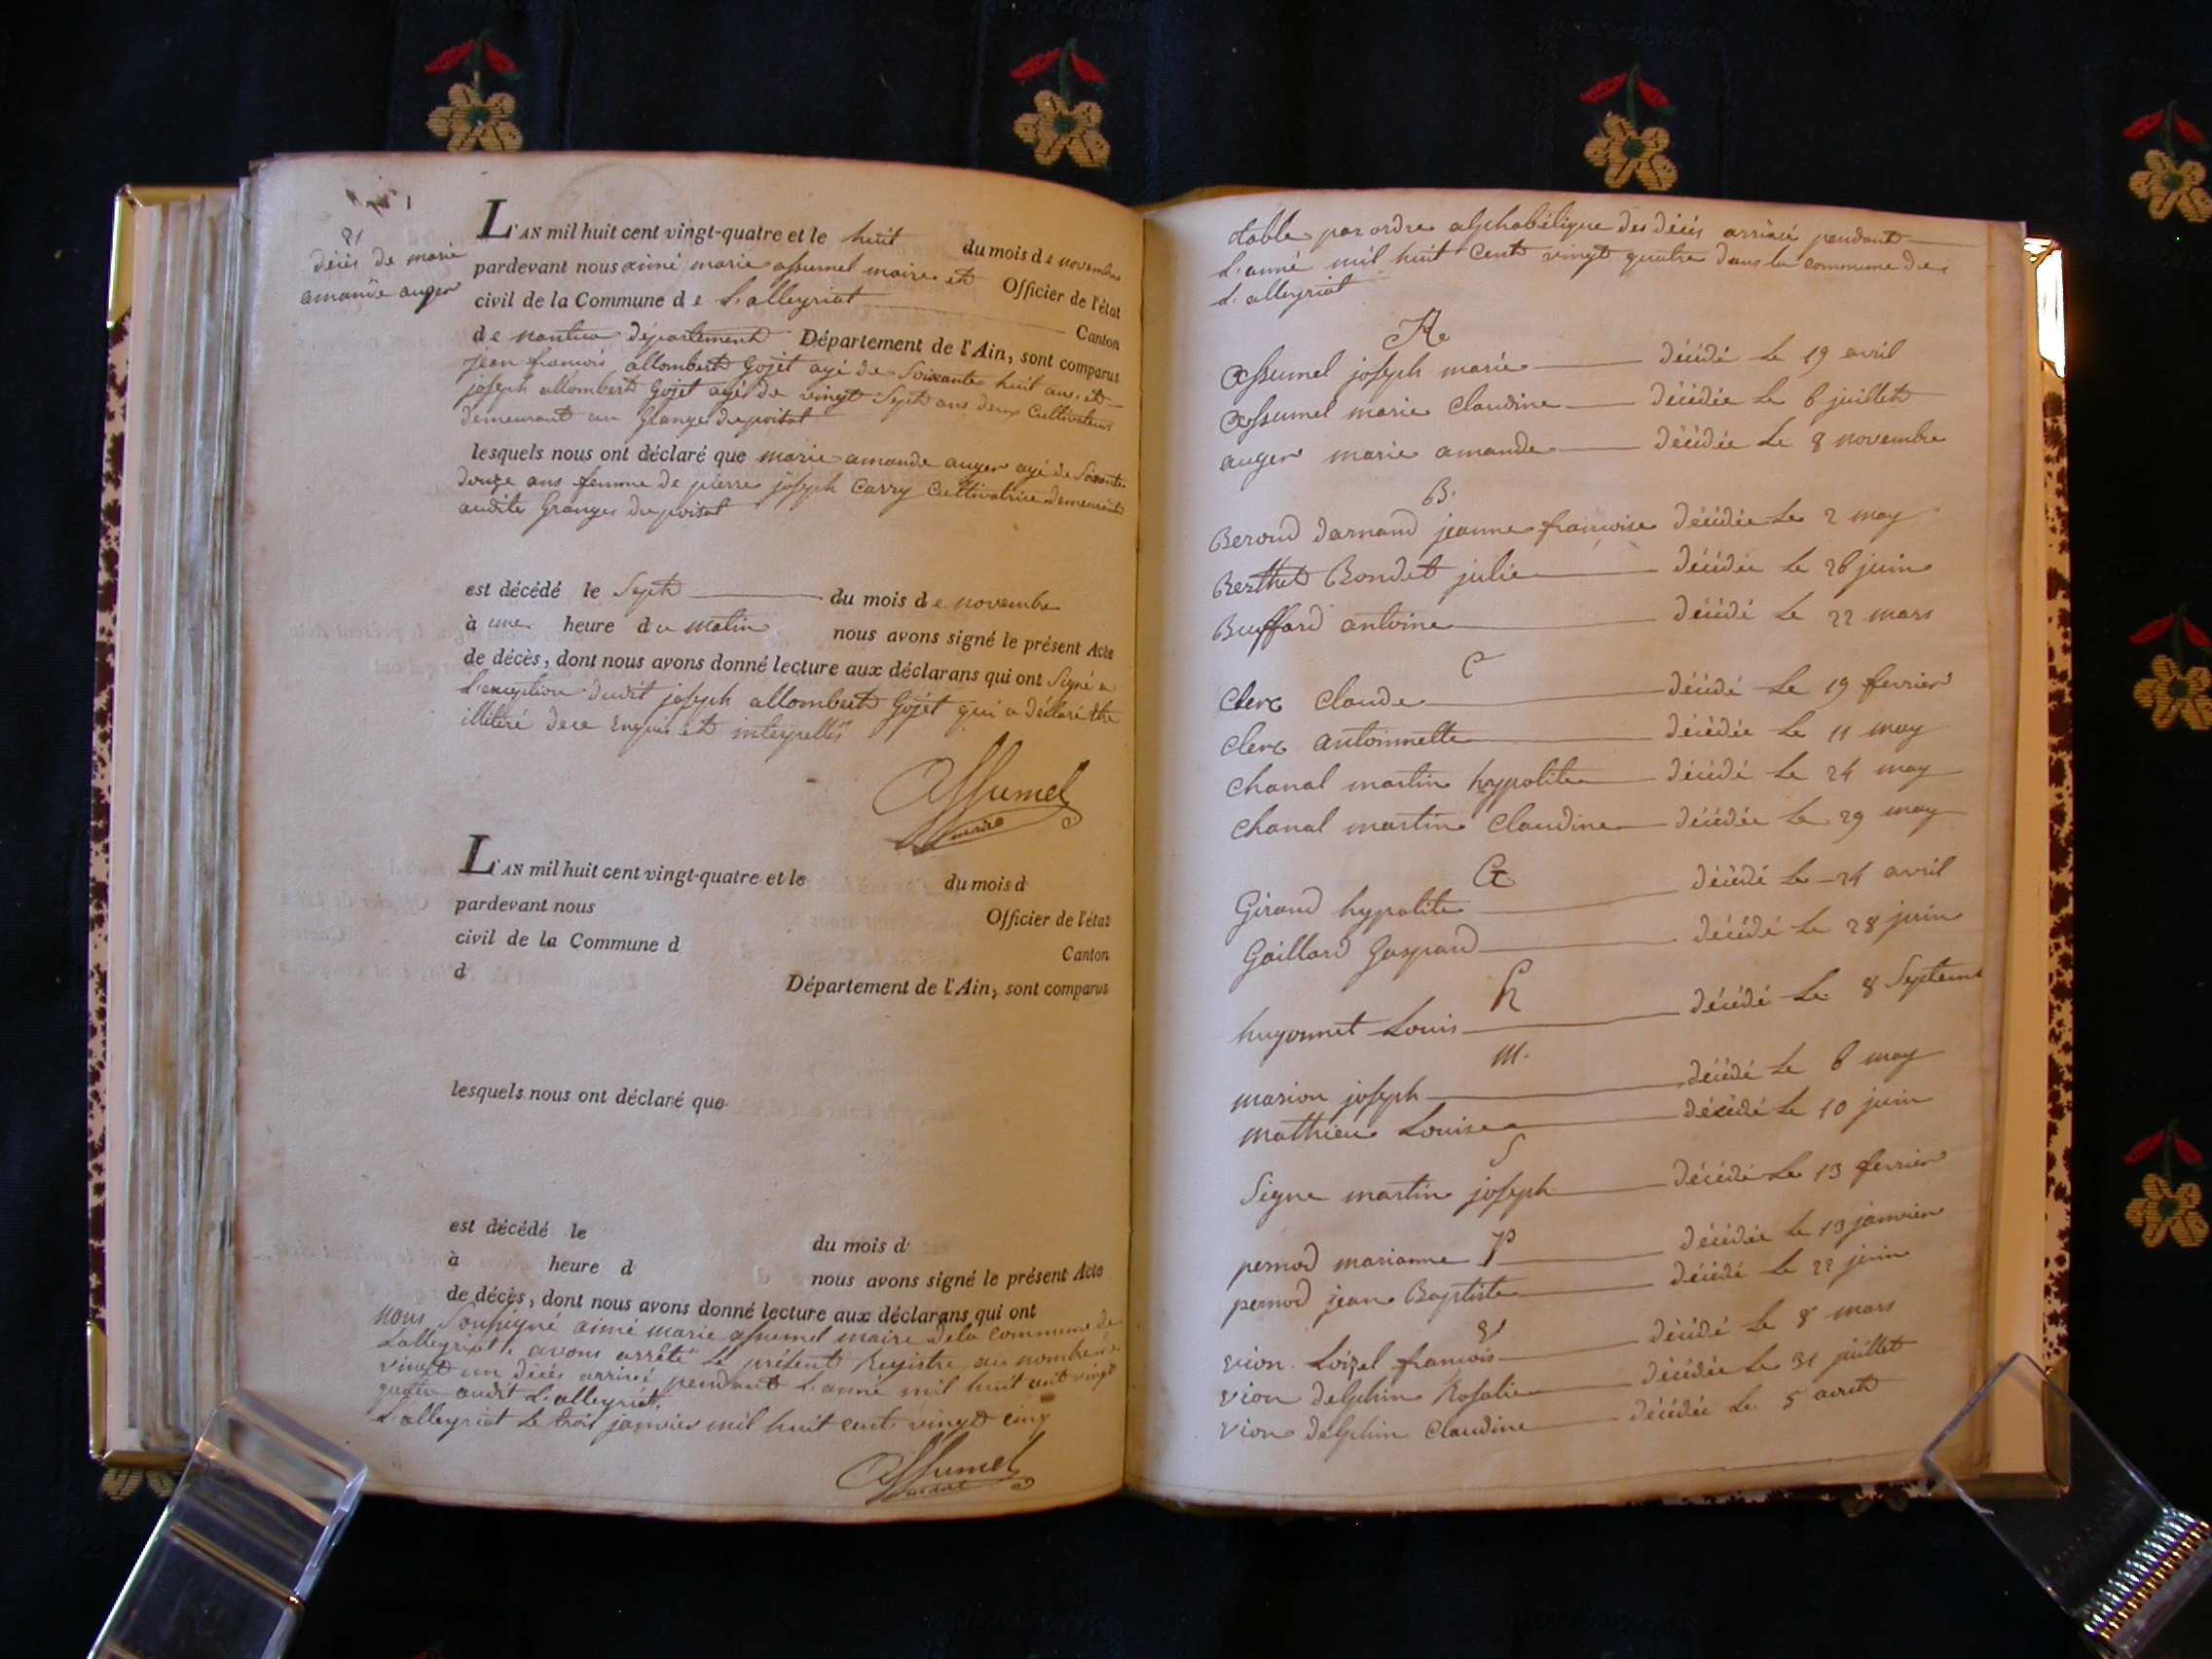 21
décès de marie
amande auger
L'AN mil huit cent vingt-quatre et le huit du mois de novembre
pardevant nous aimé marie assumel maire et Officier de l'état
civil de la Commune de L'alleyriat Canton
de nantua département Département de l'Ain, sont comparus
jean francois allombert Gojet agé de Soixante huit ans et
joseph allombert Gojet agé de vingt Sept ans deux Cultivateurs
demeurant au Granges du poisat
lesquels nous ont déclaré que marie amande auger agé de Soixante
douze ans femme de pierre joseph Carry Cultivatrice demeurant
audite Granges du poisat
est décédé le Sept du mois de novembre
à une heure du matin nous avons signé le présent Acte
de décès, dont nous avons donné lecture aux déclarans qui ont Signé a
L'exception dudit joseph allombert Gojet qui a déclaré être
illitéré de ce Enquis et interpellés
Assumel
maire
L'AN mil huit cent vingt-quatre et le du mois d
pardevant nous Officier de l'état
civil de la Commune d Canton
d Département de l'Ain, sont comparus
lesquels nous ont déclaré que
est décédé le du mois d
à heure d nous avons signé le présent Acte
de décès, dont nous avons donné lecture aux déclarans qui ont
nous Soussigné aimé marie assumel maire dela commune de
Lalleyriat, avons arrêté Le présent Registre au nombre de
vingt un décès arrivé pendant L'anné mil huit cent vingt
quatre audit L'alleyriat,
L'alleyriat Le trois janvier mil huit cent vingt cinq
Assumel
maire
table par ordre alphabétique des décès arrivé pendant
L'anné mil huit Cent vingt quatre dans la commune de
L'alleyriat
A
assumel joseph marie décédé Le 19 avril
assumel marie Claudine décédée Le 6 juillet
auger marie amande décédée Le 8 novembre
B.
Beroud darnand jeanne francoise décédée Le 2 may
Berthet Bondet julie décédée Le 26 juin
Buffard antoine décédé Le 22 mars
C
Clerc Claude décédé Le 19 fevrier
Clerc antoinnette décédée Le 11 may
Chanal martin hypolite décédé Le 24 may
Chanal martin Claudine décédée Le 29 may
G
Giroud hypolite décédé Le 24 avril
Gaillard Gaspard décédé Le 28 juin
h
hugonnet Louis décédé Le 8 Septem
m.
marion joseph décédé Le 6 may
mathieu Louise décédé Le 10 juin
S
Signe martin joseph décédé Le 13 fevrier
P
pernod marianne décédée Le 13 janvier
pernod jean Baptiste décédé Le 22 juin
V
vion Loizel francois décédé Le 8 mars
vion delphin Rosalie décédée Le 31 juillet
vion delphin Claudine décédée Le 5 avril